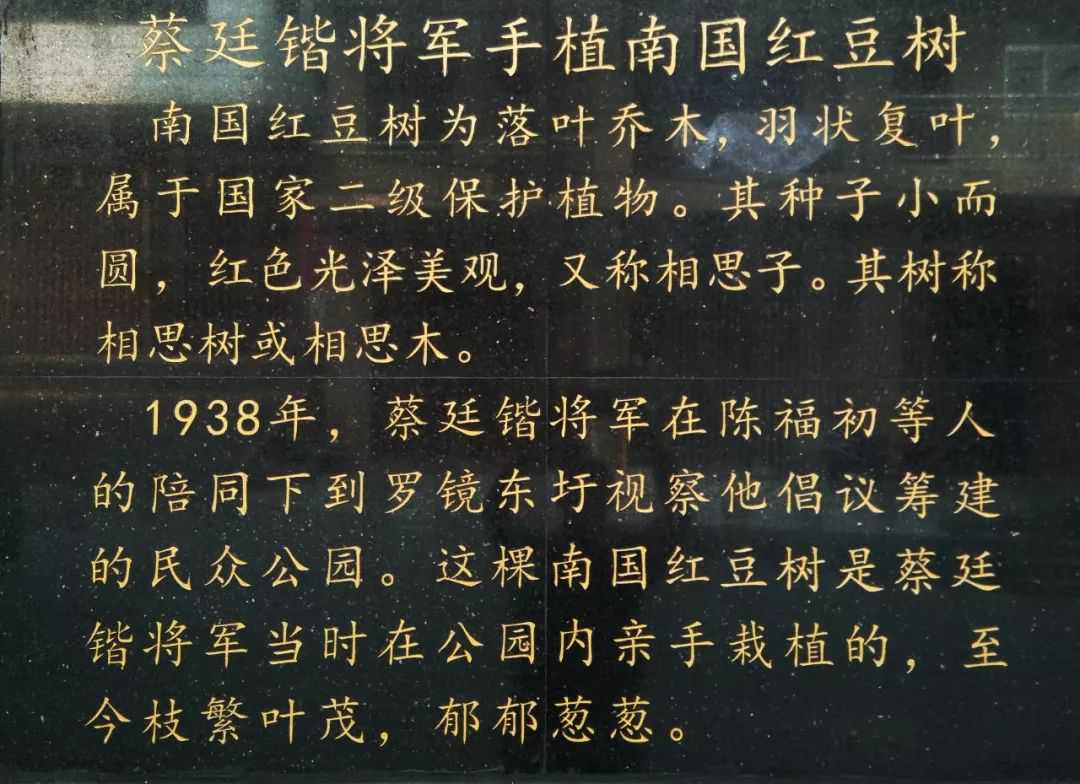 蔡廷锴将军手植南国红豆树
南国红豆树为落叶乔木，羽状复叶，
属于国家二级保护植物。其种子小而
圆，红色光泽美观，又称相思子。其树称
相思树或相思木。
1938年，蔡廷锴将军在陈福初等人
的陪同下到罗镜东圩视察他倡议筹建
的民众公园。这棵南国红豆树是蔡廷
锴将军当时在公园内亲手栽植的，至
今枝繁叶茂，郁郁葱葱。